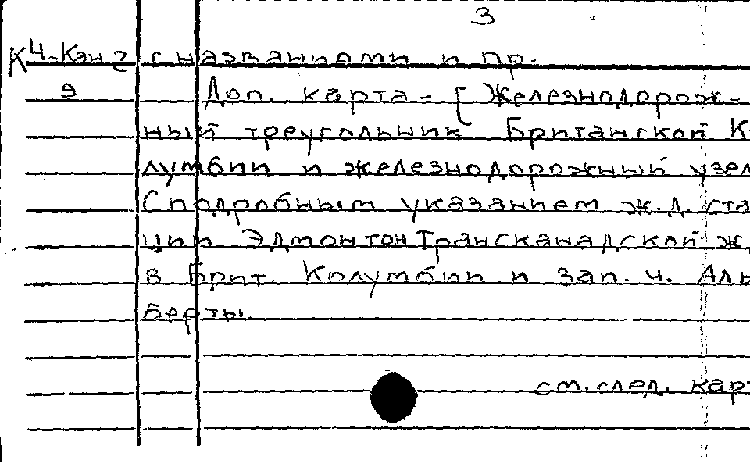 3
К4-Кэнг с названиями и пр.
9 Доп. карта - [Железнодорож-
ный треугольник Британской К
лумбии и железнодорожный узел
С подробным указанием ж.д. ста
ции Эдмонтон Трансканадской ж
в Брит Колумбии и зап. ч. Аль
берты.
см. след. кар